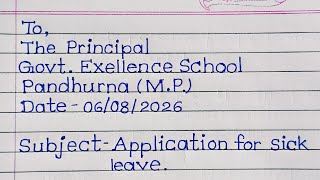 To,
The Principal
Govt. Exellence School
Pandhurna (M.P.)
Date - 06/08/2026
Subject - Application for sick
leave.